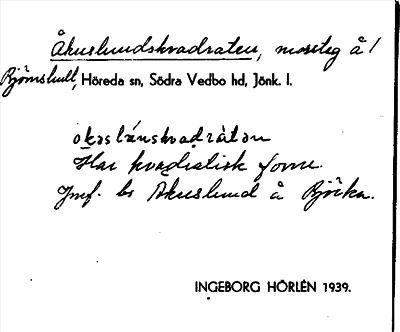 Åkuslundskvadraten, mosteg å /
Björnshult, Höreda sn, Södra Vedbo hd, Jönk. l.
okəslúnskvadràtən
Har kvadratisk form.
Jmf. bs Åkuslund å Björka.
INGEBORG HÖRLÉN 1939.